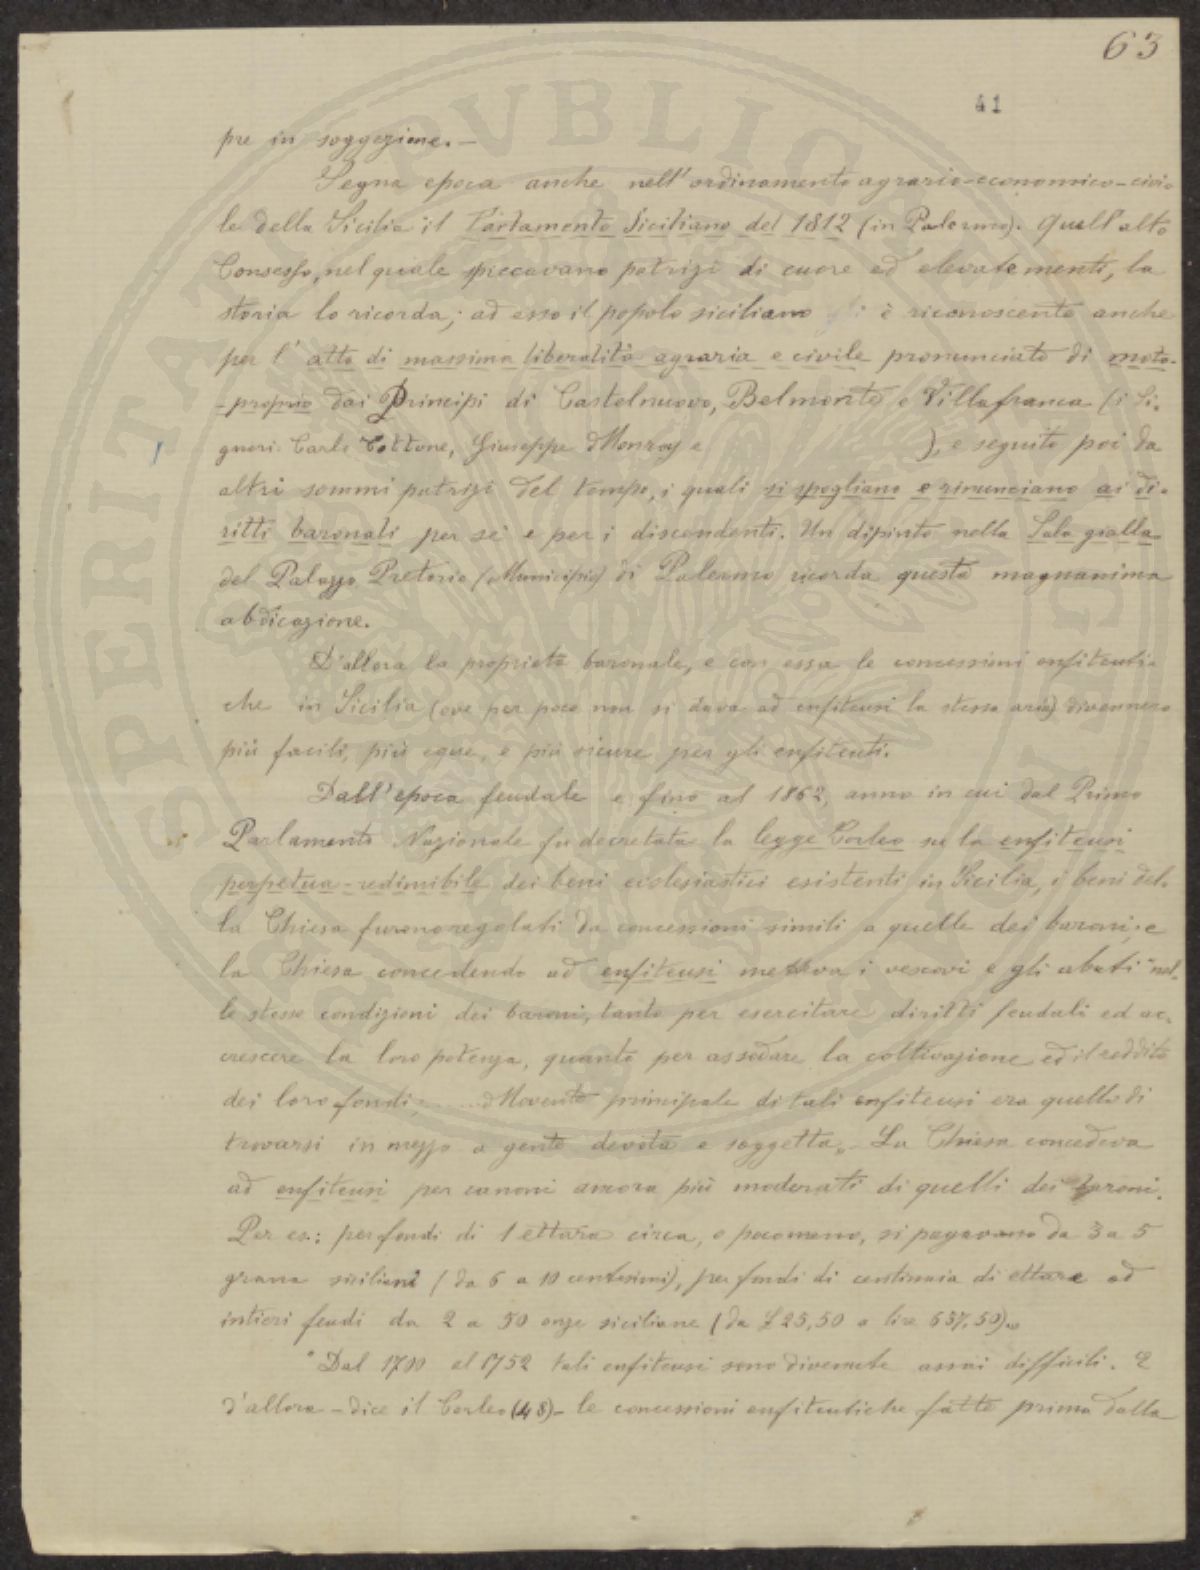 63
41
pre in soggezione. —
Segna epoca anche nell'ordinamento agrario-economico-civi-
le della Sicilia il Parlamento Siciliano del 1812 (in Palermo). Quell'alto
Consesso, nel quale spiccavano patrizi di cuore ed elevate menti, la
storia lo ricorda; ad esso il popolo siciliano è riconoscente anche
per l'atto di massima liberalità agraria e civile pronunciato di moto-
-proprio dai Principi di Castelnuovo, Belmonte e Villafranca (i Si-
gnori Carlo Cottone, Giuseppe Monroy e ), e seguito poi da
altri sommi patrizi del tempo, i quali si spogliano e rinunciano ai di-
ritti baronali per sè e per i discendenti. Un dipinto nella Sala gialla
del Palazzo Pretorio (Municipio) di Palermo ricorda questa magnanima
abdicazione.
D'allora la proprietà baronale, e con essa le concessioni enfiteuti-
che in Sicilia (ove per poco non si dava ad enfiteusi la stessa aria) divennero
più facili, più eque, e più sicure per gli enfiteuti.
Dall'epoca feudale e fino al 1862, anno in cui dal Primo
Parlamento Nazionale fu decretata la legge Corleo su la enfiteusi
perpetua-redimibile dei beni ecclesiastici esistenti in Sicilia, i beni del-
la Chiesa furono regolati da concessioni simili a quelle dei baroni; e
la Chiesa concedendo ad enfiteusi metteva i vescovi e gli abati "nel-
le stesse condizioni dei baroni, tanto per esercitare diritti feudali ed ac-
crescere la loro potenza, quanto per assodare la coltivazione ed il reddito
dei loro fondi; ..... Movente principale di tali enfiteusi era quello di
trovarsi in mezzo a gente devota e soggetta". La Chiesa concedeva
ad enfiteusi per canoni ancora più moderati di quelli dei baroni.
Per es.: per fondi di 1 ettaro circa, o poco meno, si pagavano da 3 a 5
grana siciliani (da 6 a 10 centesimi), per fondi di centinaia di ettare ed
intieri feudi da 2 a 50 onze siciliane (da £ 25,50 a lire 637,50).
"Dal 1700 al 1752 tali enfiteusi sono divenute assai difficili. E
d'allora - dice il Corleo (48) - le concessioni enfiteutiche fatte prima dalla